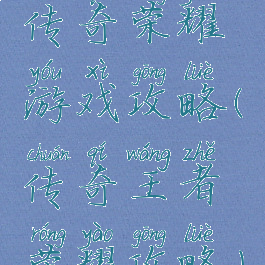 传奇荣耀
yóu xì gōng lüè
游戏攻略(
chuán qí wáng zhě
传奇王者
róng yào gōng lüè
荣耀攻略(